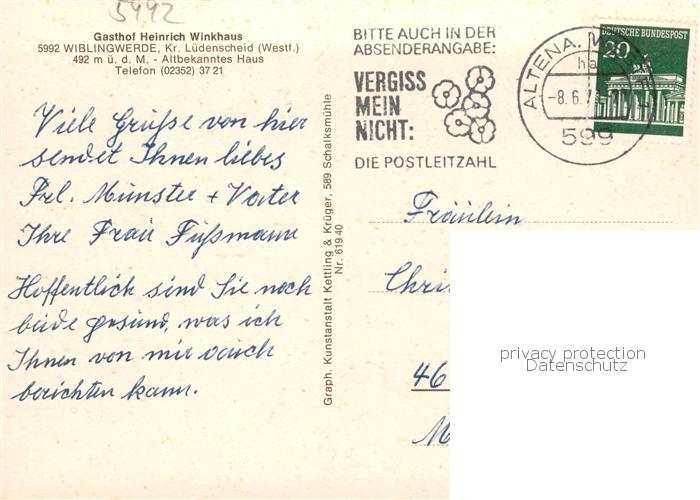 5992
Gasthof Heinrich Winkhaus
5992 WIBLINGWERDE, Kr. Lüdenscheid (Westf.)
492 m ü. d. M. - Altbekanntes Haus
Telefon (02352) 37 21
Viele Grüße von hier
sendet Ihnen liebes
Frl. Münster + Vater
Ihre Frau Füßmann
Hoffentlich sind Sie noch
beide gesund, was ich
Ihnen von mir auch
berichten kann.
Graph. Kunstanstalt Kettling & Krüger, 589 Schalksmühle
Nr. 619 40
BITTE AUCH IN DER
ABSENDERANGABE:
VERGISS
MEIN
NICHT:
DIE POSTLEITZAHL
ALTENA, W
ha
-8.6.7
599
DEUTSCHE BUNDESPOST
20
Fräulein
Chri
46
M
privacy protection
Datenschutz